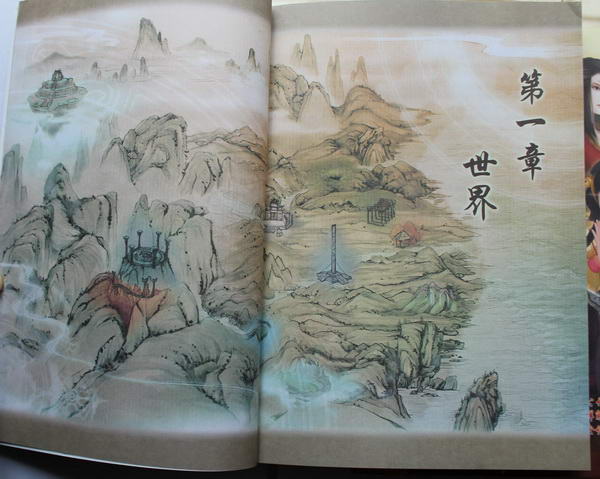 第一章
世界